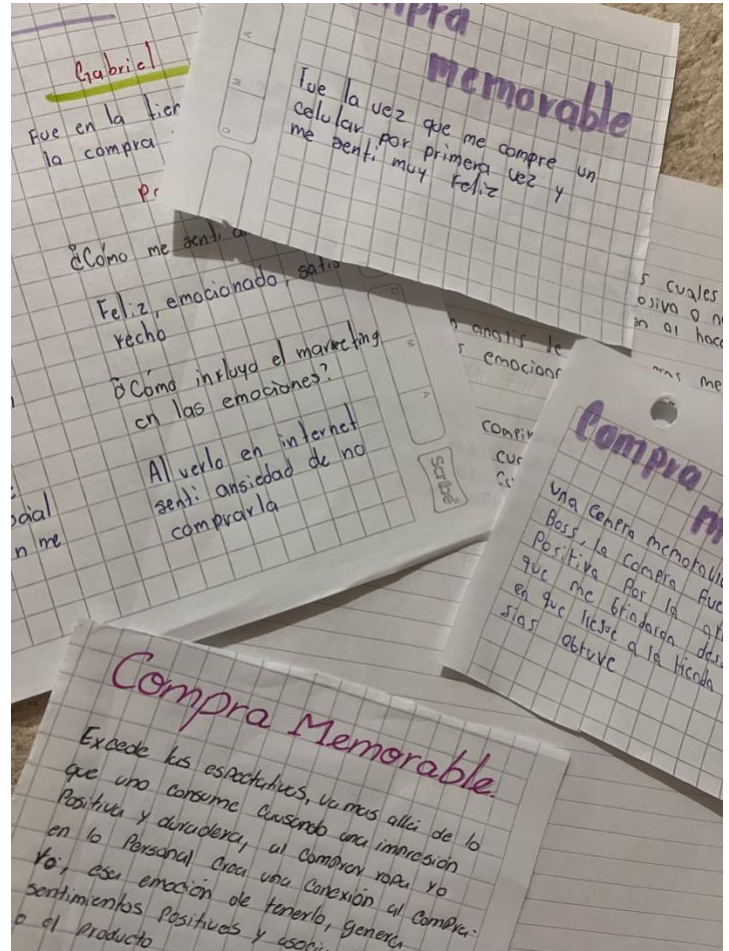 Gabriel
Fue en la tien
la compra
Pr
¿Cómo me sentí a
Feliz, emocionado, satis
vecho
¿Cómo influyó el marketing
en las emociones?
Al verlo en internet
sentí ansiedad de no
comprarla
cial
n me
mpra
memorable
Fue la vez que me compre un
celular por primera vez y
me sentí muy feliz
s cuales
ositiva o n
en al hac
n analis de
s emocion
me
compr
cuc
scribe
Compra
m
una compra memorable
Boss, la compra fue
Positiva por la at
que me brindaron des
en que llegue a la tienda
sias obtuve
Compra Memorable.
Excede las espectativas, va mas allá de lo
que uno consume causando una impresión
Positiva y duradera, al comprar ropa yo
en lo personal creo una conexión al compra:
Yo, esa emoción de tenerlo, genera
sentimientos positivos y asoci
o el producto